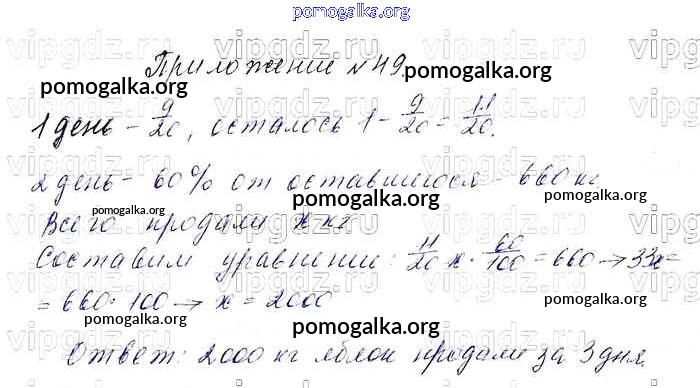 pomogalka.org
Приложение №49.
pomogalka.org pomogalka.org
1 день - 9/20, осталось 1 - 9/20 = 11/20.
2 день - 60% от оставшегося - 660 кг
pomogalka.org pomogalka.org
Всего продали x кг
Составим уравнение: 11/20 x · 60/100 = 660 → 33x =
= 660 · 100 → x = 2000
pomogalka.org pomogalka.org pomogalka.org
Ответ: 2000 кг яблок продали за 3 дня.
pomogalka.org